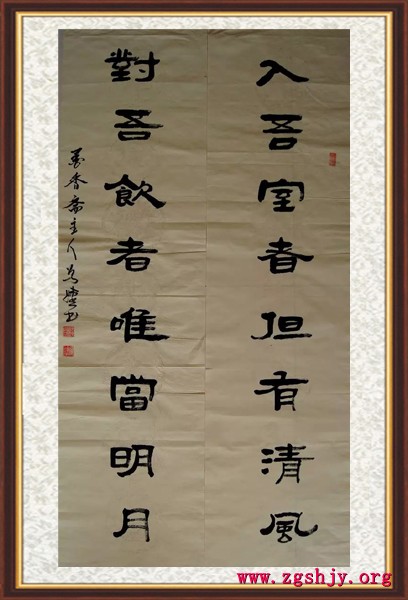 入吾室者但有清風
對吾飲者唯當明月
墨香齋主人
www.zgshjy.org